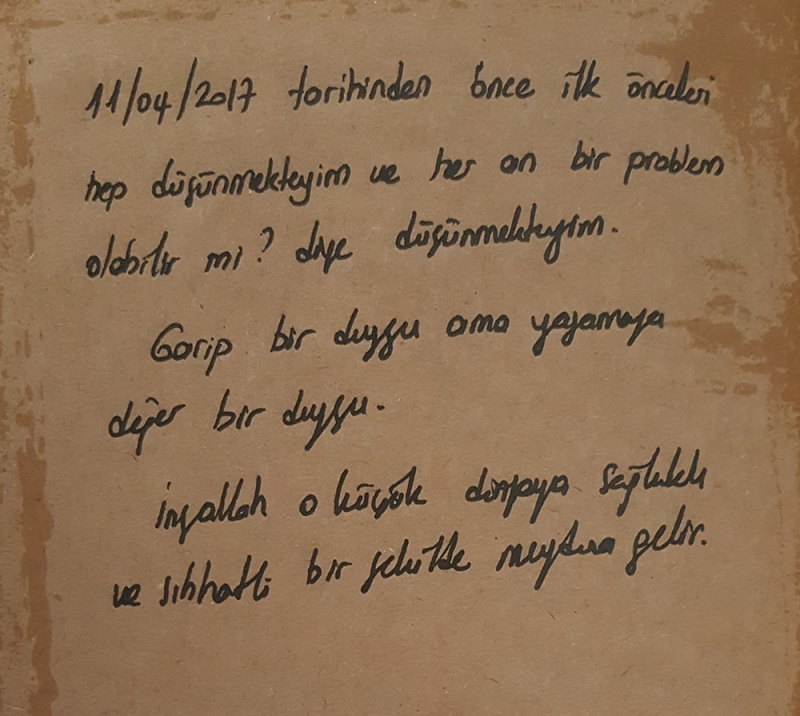 11/04/2017 tarihinden önce ilk önceleri
hep düşünmekteyim ve her an bir problem
olabilir mi? diye düşünmekteyim.
Garip bir duygu ama yaşamaya
değer bir duygu.
İnşallah o küçük dünyaya sağlıklı
ve sıhhatli bir şekilde meydana gelir.